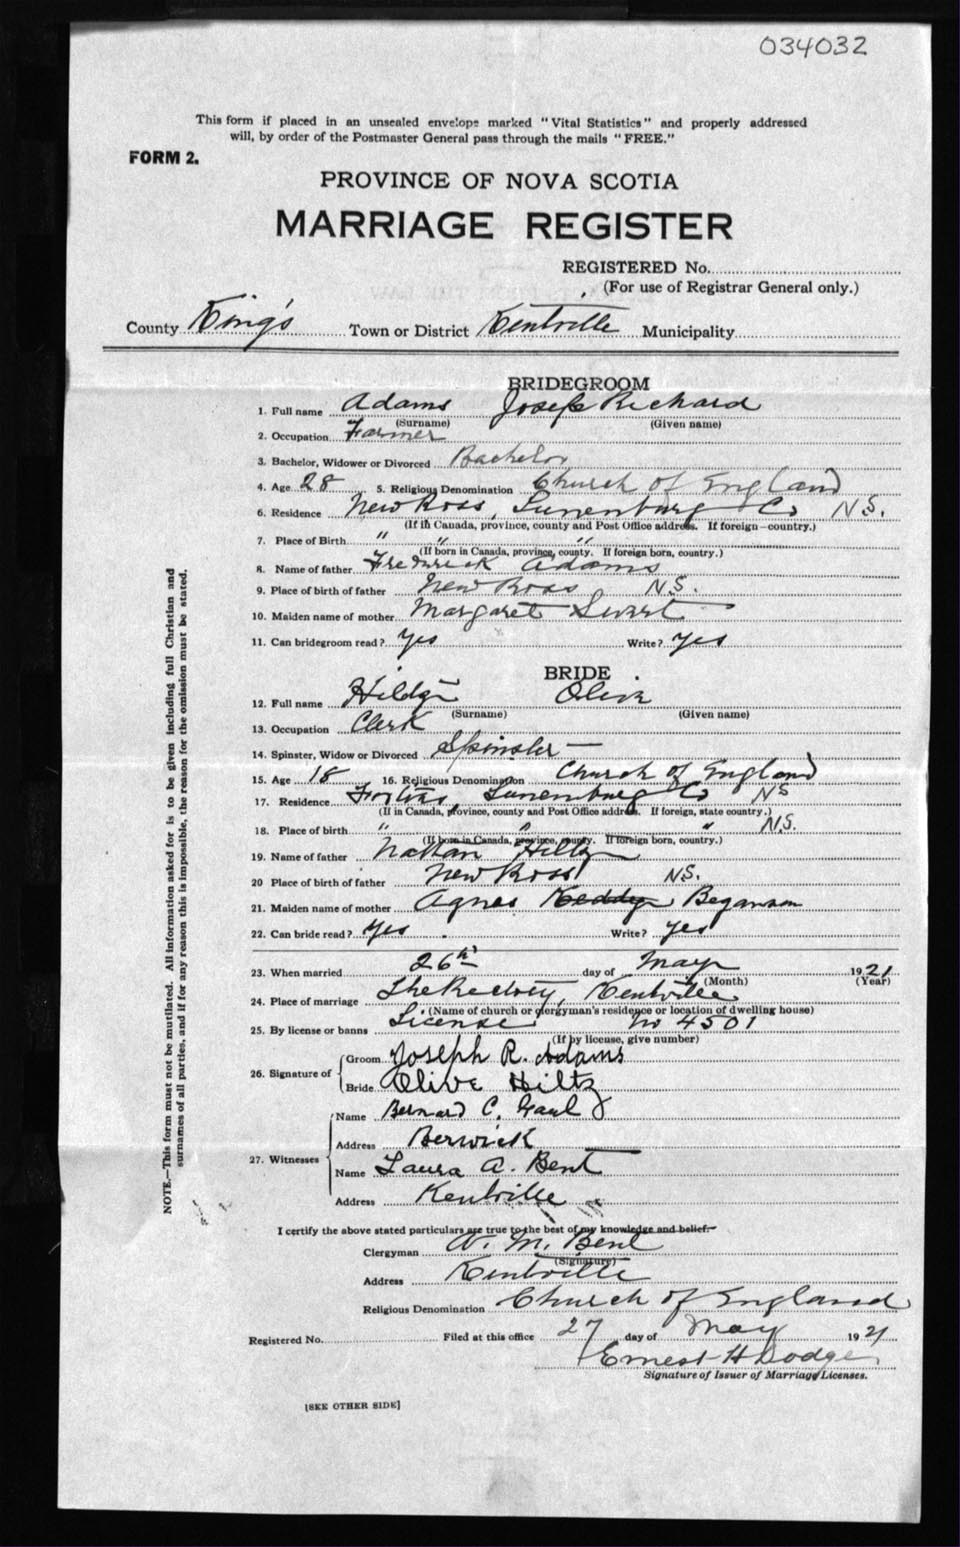 034032
This form if placed in an unsealed envelope marked "Vital Statistics" and properly addressed
will, by order of the Postmaster General pass through the mails "FREE."
FORM 2.
PROVINCE OF NOVA SCOTIA
MARRIAGE REGISTER
REGISTERED No.
(For use of Registrar General only.)
County King's Town or District Kentville Municipality
BRIDEGROOM
1. Full name Adams Joseph Richard
(Surname) (Given name)
2. Occupation Farmer
3. Bachelor, Widower or Divorced Bachelor
4. Age 28 5. Religious Denomination Church of England
6. Residence New Ross, Lunenburg Co N.S.
(If in Canada, province, county and Post Office address. If foreign—country.)
7. Place of Birth " " "
(If born in Canada, province, county. If foreign born, country.)
8. Name of father Frederick Adams
9. Place of birth of father New Ross N.S.
10. Maiden name of mother Margaret
11. Can bridegroom read? Yes Write? Yes
BRIDE
12. Full name Oliva
(Surname) (Given name)
13. Occupation Clerk
14. Spinster, Widow or Divorced Spinster —
15. Age 18 16. Religious Denomination Church of England
17. Residence Lunenburg Co NS
(If in Canada, province, county and Post Office address. If foreign, state country.)
18. Place of birth " " " N.S.
(If born in Canada, province, county. If foreign born, country.)
19. Name of father Nathan Hiltz
20 Place of birth of father New Ross N.S.
21. Maiden name of mother Agnes Keddy Beganson
22. Can bride read? Yes Write? Yes
23. When married 26th day of May 1921
(Month) (Year)
24. Place of marriage The Rectory, Kentville
(Name of church or clergyman's residence or location of dwelling house)
25. By license or banns License No 4501
(If by license, give number)
26. Signature of Groom Joseph R. Adams
Bride Olive Hiltz
27. Witnesses Name Bernard C. Gaul
Address Berwick
Name Laura A. Bent
Address Kentville
I certify the above stated particulars are true to the best of my knowledge and belief.
Clergyman W. M. Bent
(Signature)
Address Kentville
Religious Denomination Church of England
Registered No. Filed at this office 27 day of May 1921
Ernest H Dodge
Signature of Issuer of Marriage Licenses.
[SEE OTHER SIDE]
NOTE.—This form must not be mutilated. All information asked for is to be given including full Christian and
surnames of all parties, and if for any reason this is impossible, the reason for the omission must be stated.